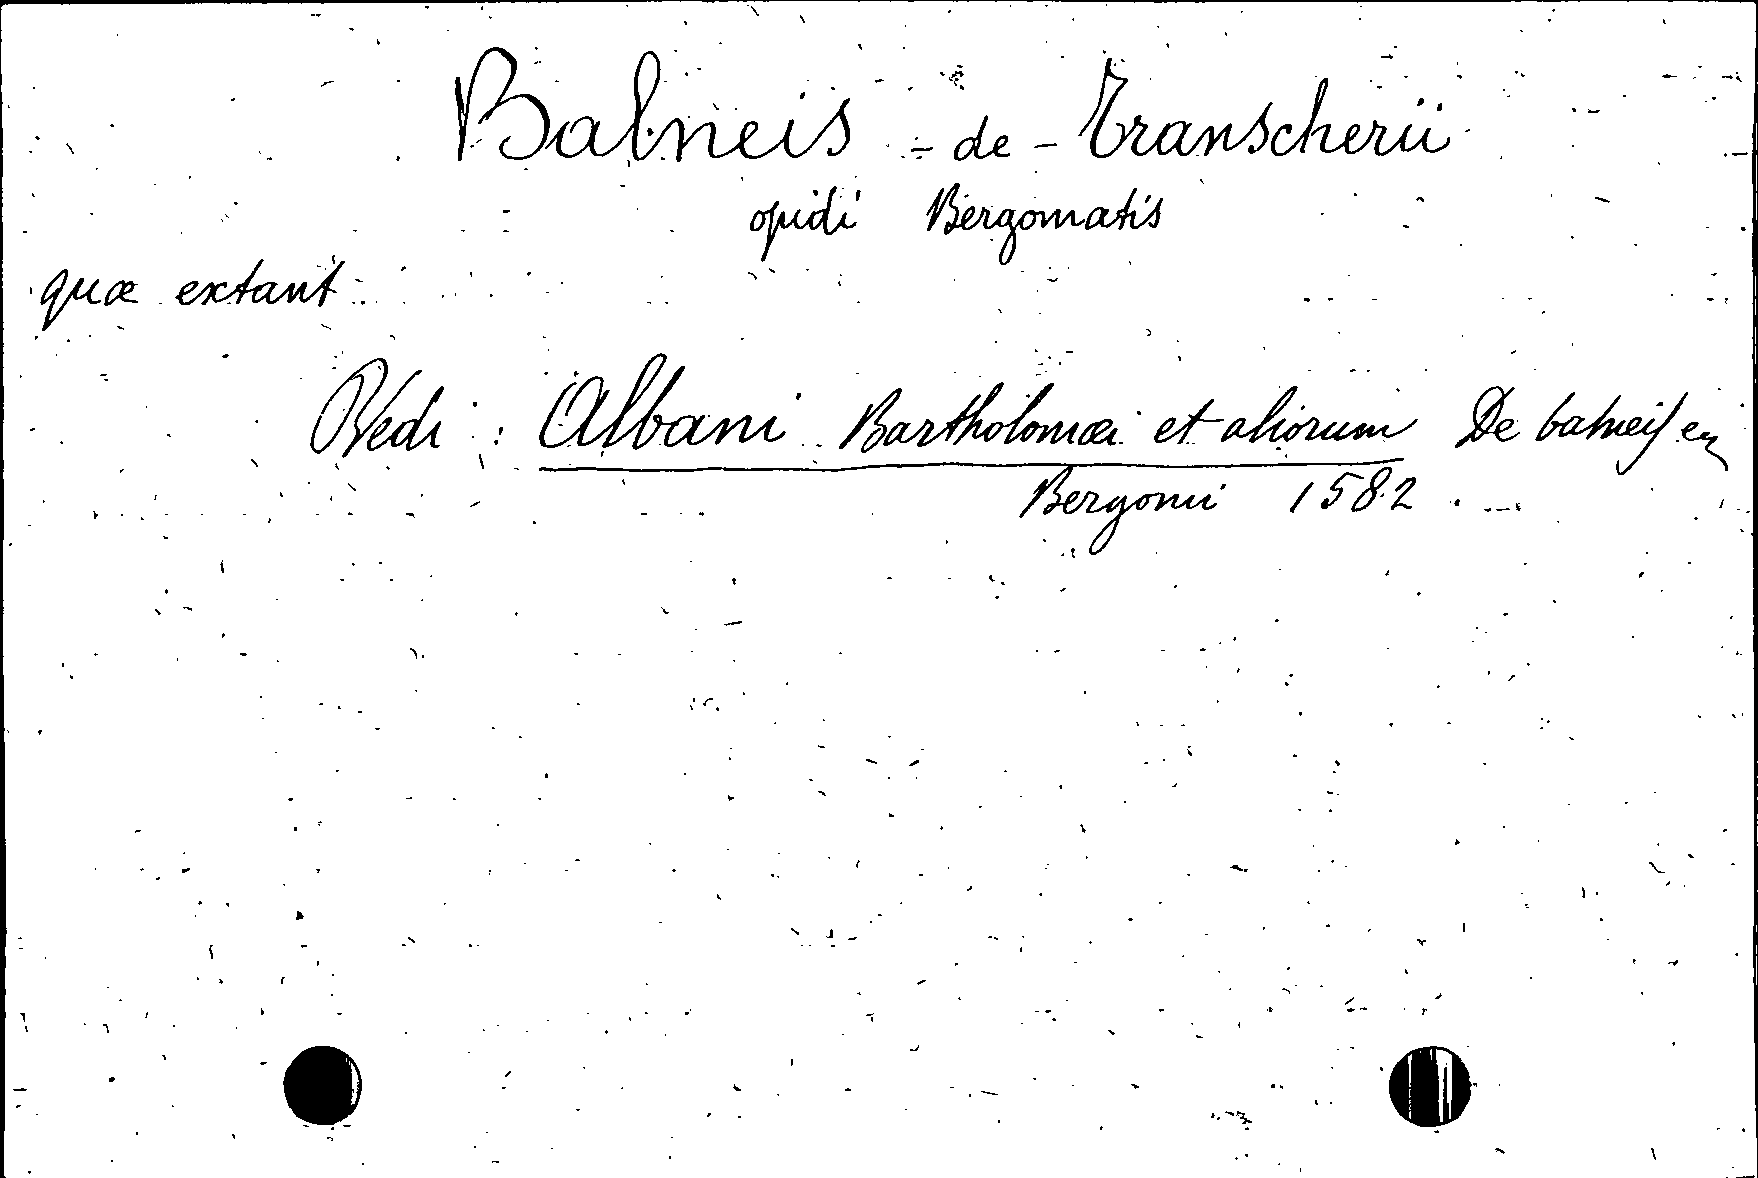 Balneis - de - Transcherii
opidi Bergomatis
quæ extant
Vedi : Albani Bartholomæi et aliorum De balneis
Bergomi 1582